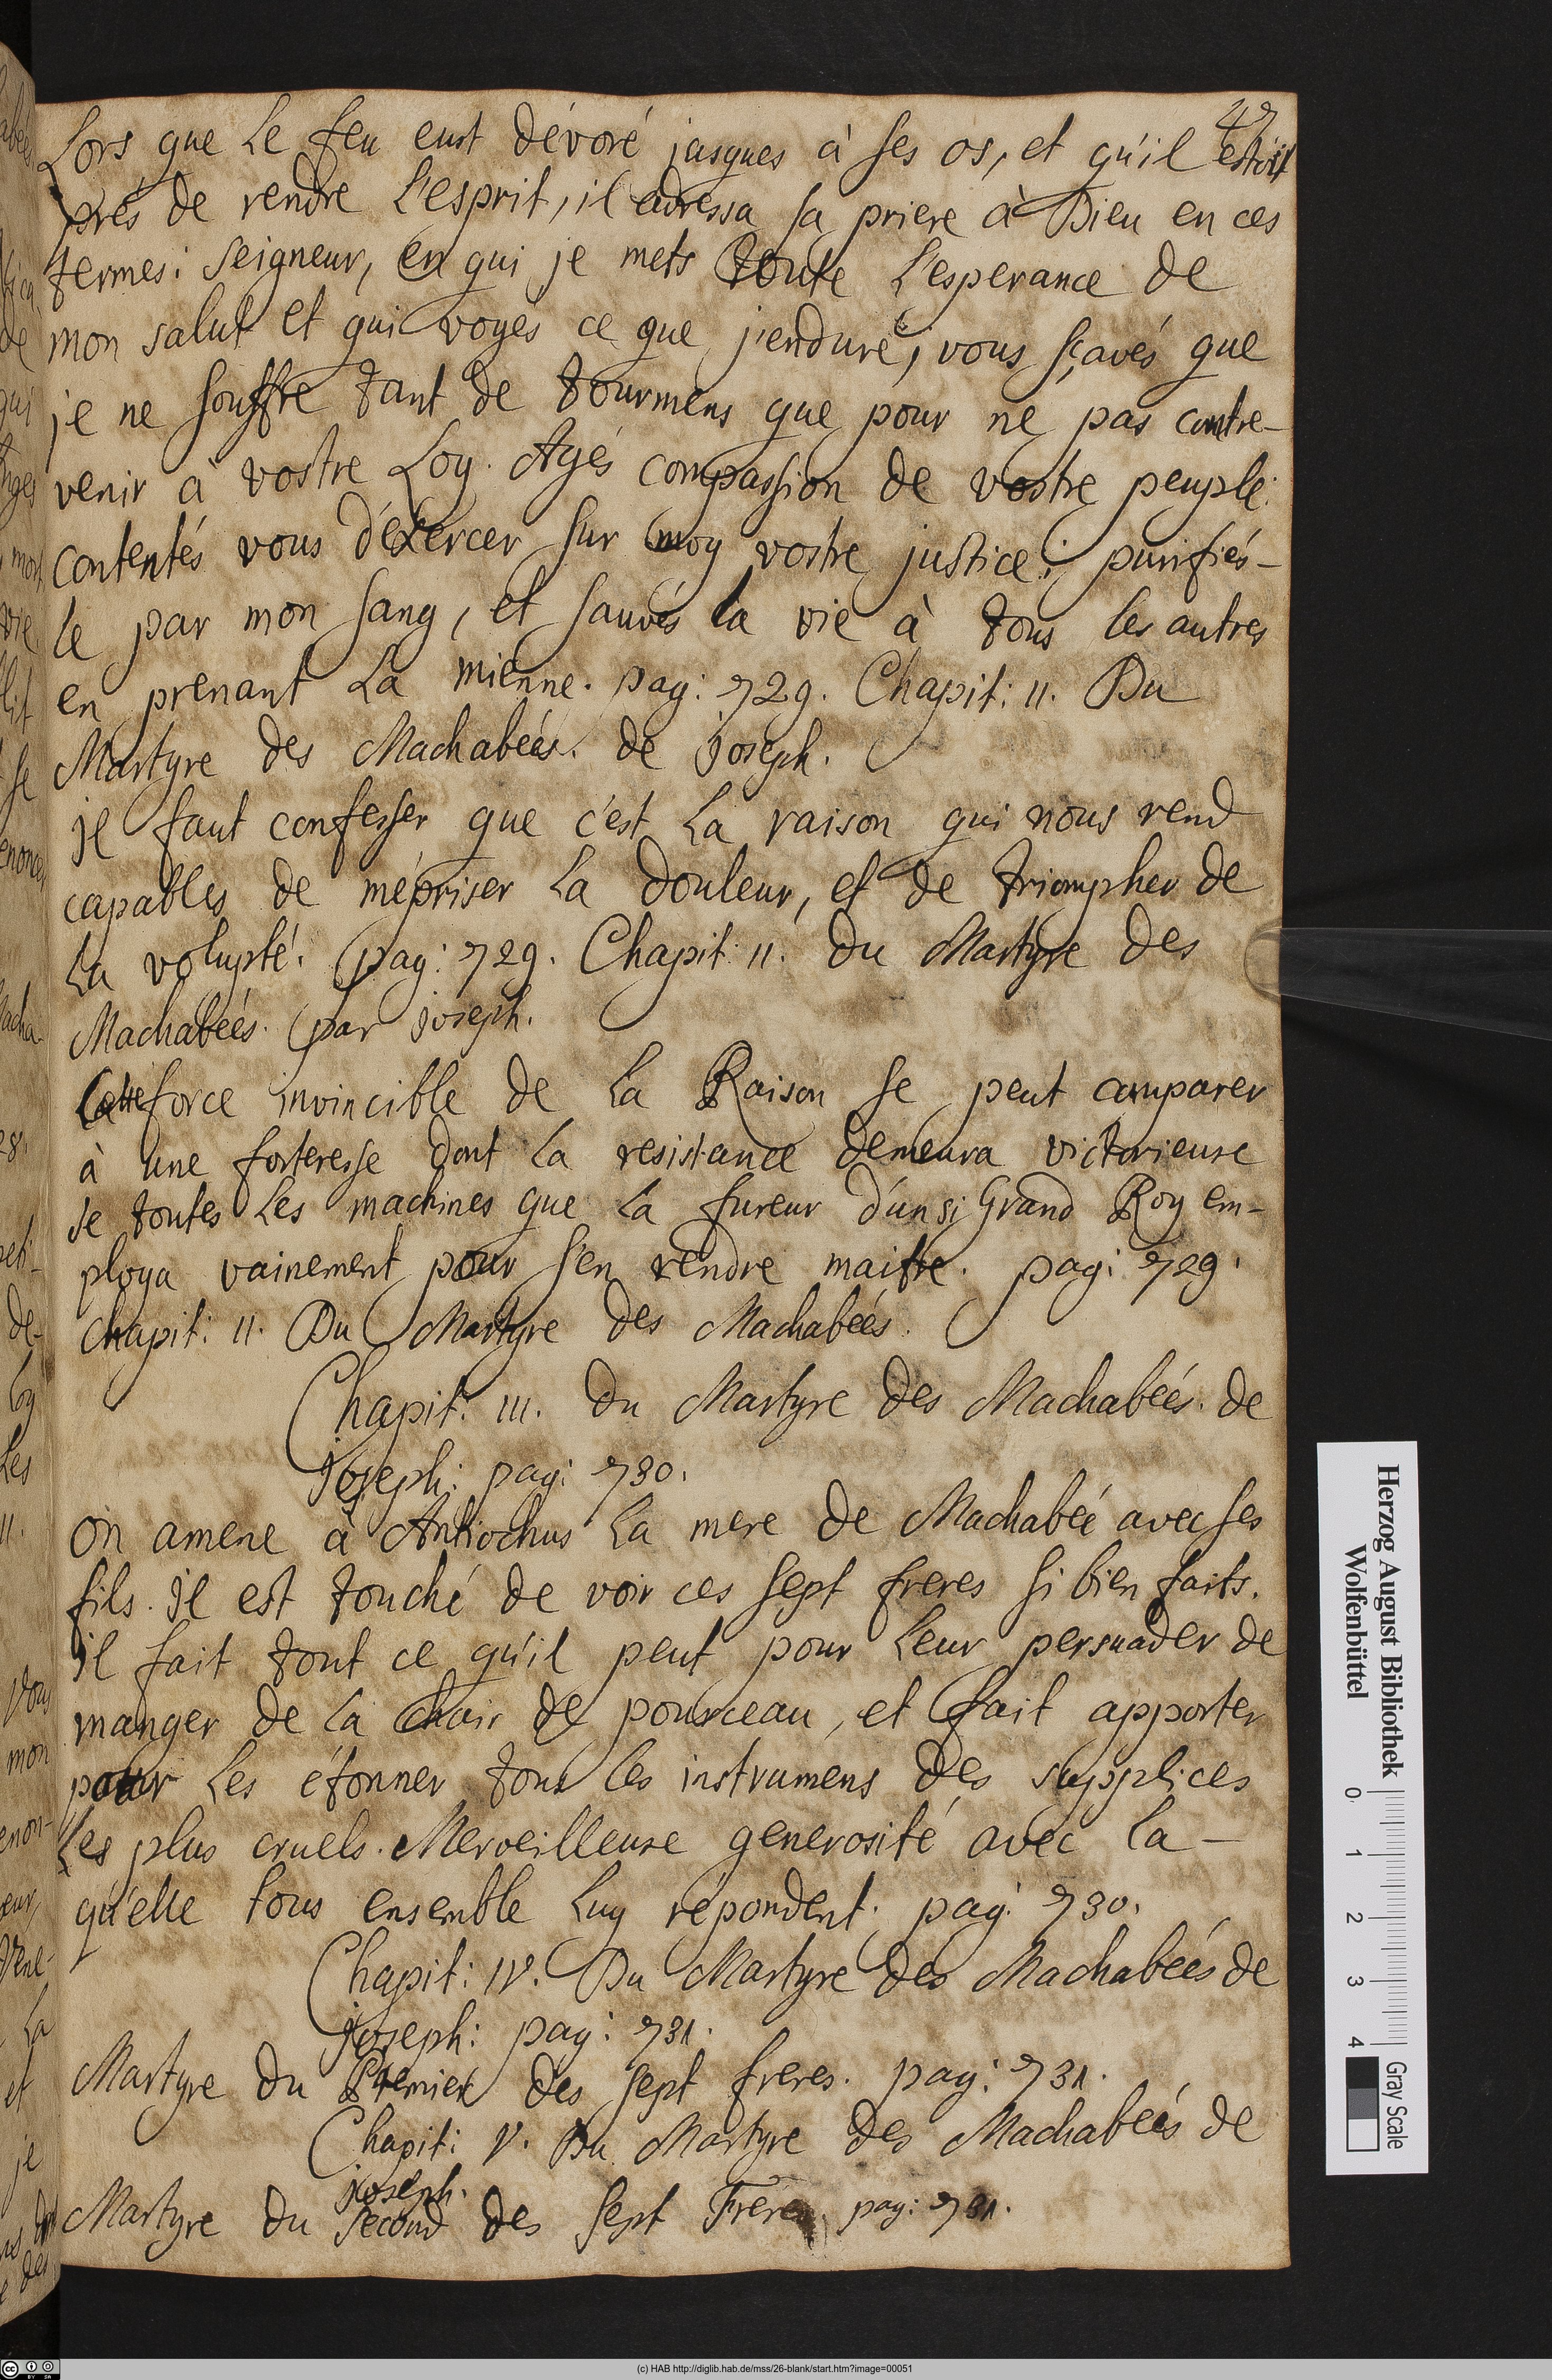 47
Lors que Le feu eust dévoré jusques à ses os, et qu'il estoit
prés de rendre L'esprit, il adressa sa priere à Dieu en ces
termes: Seigneur, en qui je mets toute L'esperance de
mon salut et qui voyés ce que j'endure, vous sçavés que
je ne souffre tant de tourmens que pour ne pas contre-
venir à vostre Loy. Ayés compassion de vostre peuple:
contentés vous d'éxercer sur moy vostre justice; purifiés-
le par mon sang, et sauvés la vie à tous les autres
en prenant La mienne. pag: 729. Chapit: II. Du
Martyre des Machabeés. de joseph.
jl faut confesser que c'est La raison qui nous rend
capables de mépriser La douleur, et de triompher de
La volupté. pag: 729. Chapit: II. Du Martyre des
Machabeés. par joseph.
Cette force invincible de La Raison se peut comparer
à une forteresse dont La resistance demeura victorieuse
de toutes Les machines que La fureur d'un si Grand Roy em-
ploya vainement pour s'en rendre maitre. pag: 729.
chapit: II. Du Martyre des Machabeés.
Chapit: III. Du Martyre des Machabeés. de
joseph: pag: 730.
On amene à Antiochus La mere de Machabeé avec ses
fils. jl est touché de voir ces sept freres si bien faits.
jl fait tout ce qu'il peut pour Leur persuader de
manger de La chair de pourceau, et fait apporter
pour Les étonner tous les instrumens des supplices
Les plus cruels. Merveilleuse generosité avec La-
qu'elle tous ensemble Luy répondent. pag: 730.
Chapit: IV. Du Martyre des Machabeés de
joseph: pag: 731.
Martyre du Premier des sept freres. pag: 731.
Chapit: V. Du Martyre des Machabeés de
joseph.
Martyre du second des sept Freres. pag: 731.
Herzog August Bibliothek
Wolfenbüttel
0 1 2 3 4
Gray Scale
(c) HAB http://diglib.hab.de/mss/26-blank/start.htm?image=00051